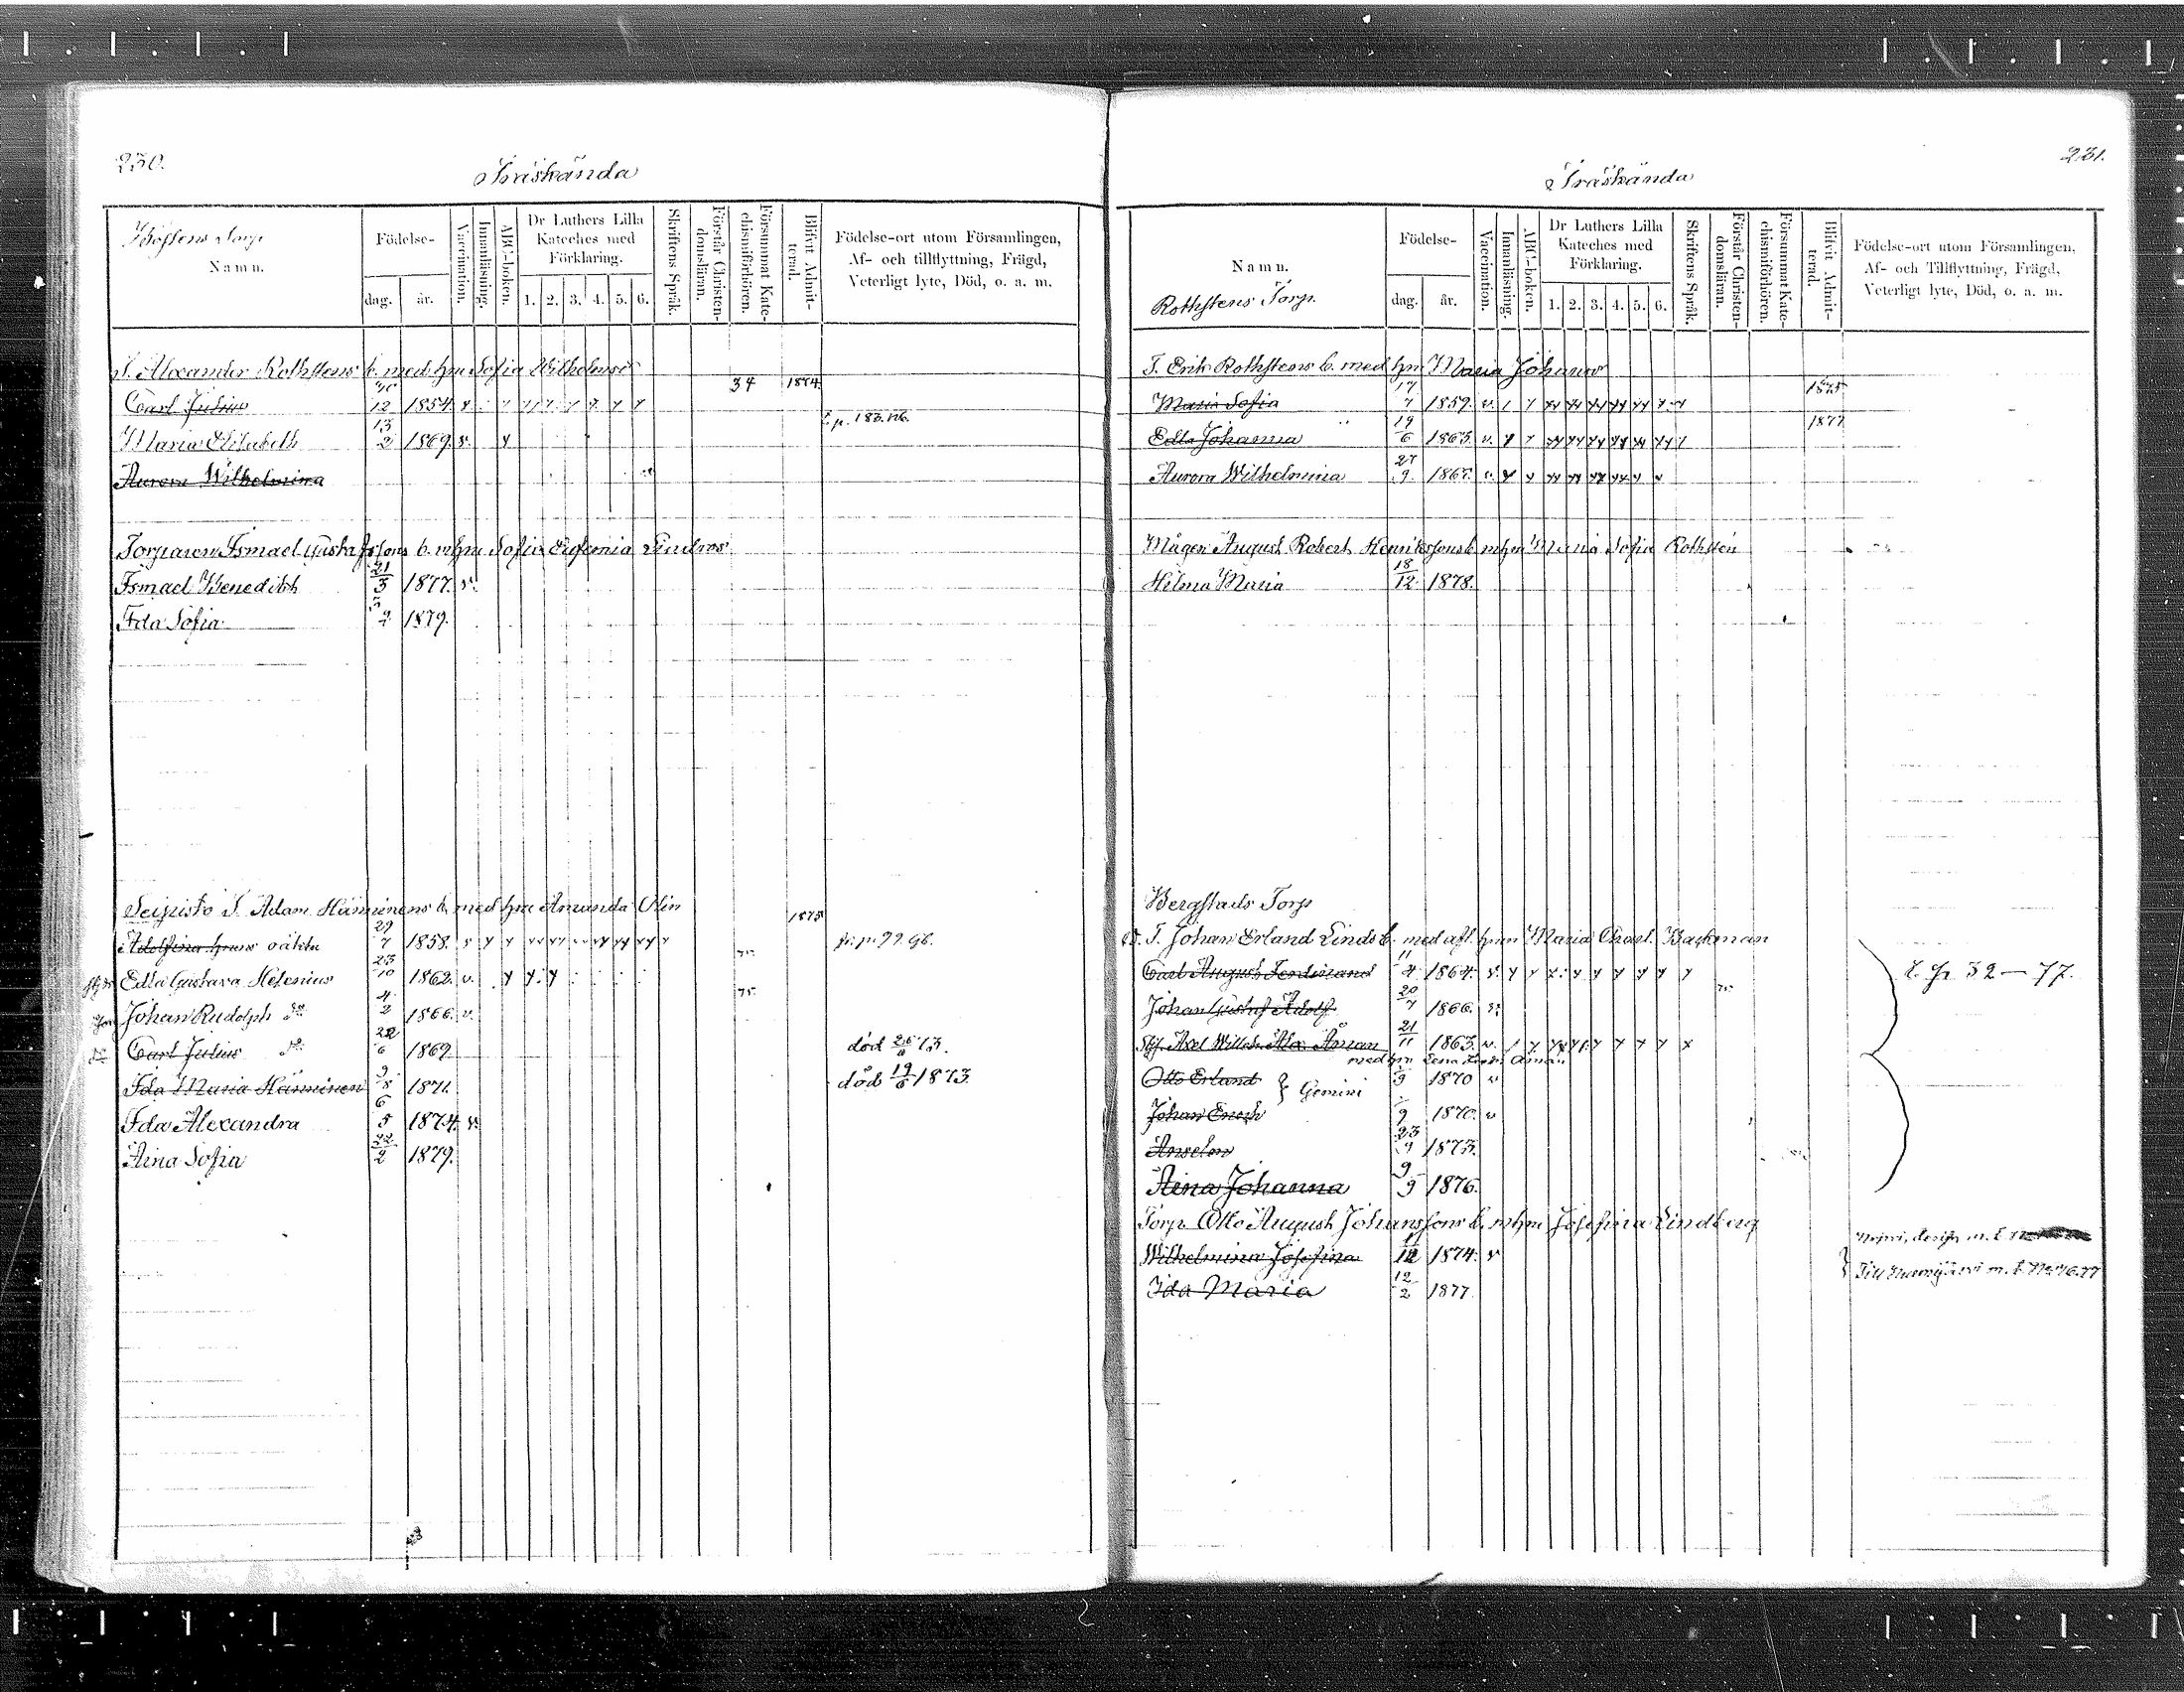 230.
Träskända
Namn.
Födelse-
dag.
år.
Vaccination.
Innanläsning.
ABC-boken.
Dr Luthers Lilla
Kateches med
Förklaring.
1. 2. 3. 4. 5. 6.
Skriftens Språk.
Förstår Christen-
domsläran.
Försummat Kate-
chismiförhören.
Blifvit Admit-
terad.
Födelse-ort utom Församlingen,
Af- och tillflyttning, Frägd,
Veterligt lyte, Död, o. a. m.
T. Alexander Rothstens b. med hm Sofia Wilhelms
Carl Julius 12 1854. 34 1874.
p. 183.
Maria Elisabeth 13/2 1869. v.
Aurora Wilhelmina
Torparen Ismael Gustafssons b. mhm Sofia Eufemia
Ismael Benedikt 21/3 1877. v.
Ida Sofia 1879.
T. Adam Hänninens b. med hm Amanda Olin
1875
Adolfina 29/7 1858.
Edla Gustava Helenius 23/10 1862. v.
75
Johan Rudolph do 4/2 1866. v.
75
Carl Julius do 22/6 1869. död 13.
Ida Maria Hänninen 9/8 1871. död 19/6 1873.
Ida Alexandra 6/5 1874. v.
Aina Sofia 22/2 1879.
231.
Träskända
Namn.
Rothstens Torp.
Födelse-
dag.
år.
Vaccination.
Innanläsning.
ABC-boken.
Dr Luthers Lilla
Kateches med
Förklaring.
1. 2. 3. 4. 5. 6.
Skriftens Språk.
Förstår Christen-
domsläran.
Försummat Kate-
chismiförhören.
Blifvit Admit-
terad.
Födelse-ort utom Församlingen,
Af- och Tillflyttning, Frägd,
Veterligt lyte, Död, o. a. m.
T. Erik Rothstens b. med hm Maria Johans
Maria Sofia 17/7 1859. v. 1875
Edla Johanna 19/6 1863. v. 1877
Aurora Wilhelmina 27/9 1867. v.
Mågen August Robert Henrikssons b. mhm Maria Sofia Rothsten
Hilma Maria 18/12 1878.
Bergstads Torp
T. Johan Erland Linds b. med afl. hm Maria Charl. Backman
Carl August Ferdinand 11/4 1864. v.
Johan Gustaf Adolf 20/7 1866. v. 75
Axel Wilh. Alex. Åman 21/11 1863. v.
med hm Lena
Otto Erland } Gemini 9 1870 v
Johan Enoch 9 1870. v
Anselm 23/9 1873.
Aina Johanna 9/9 1876.
32 — 77.
Torp. Otto August Johanssons b. mhm Josefina Lindberg
Wilhelmina Josefina 11/12 1874. v
Ida Maria 12/2 1877.